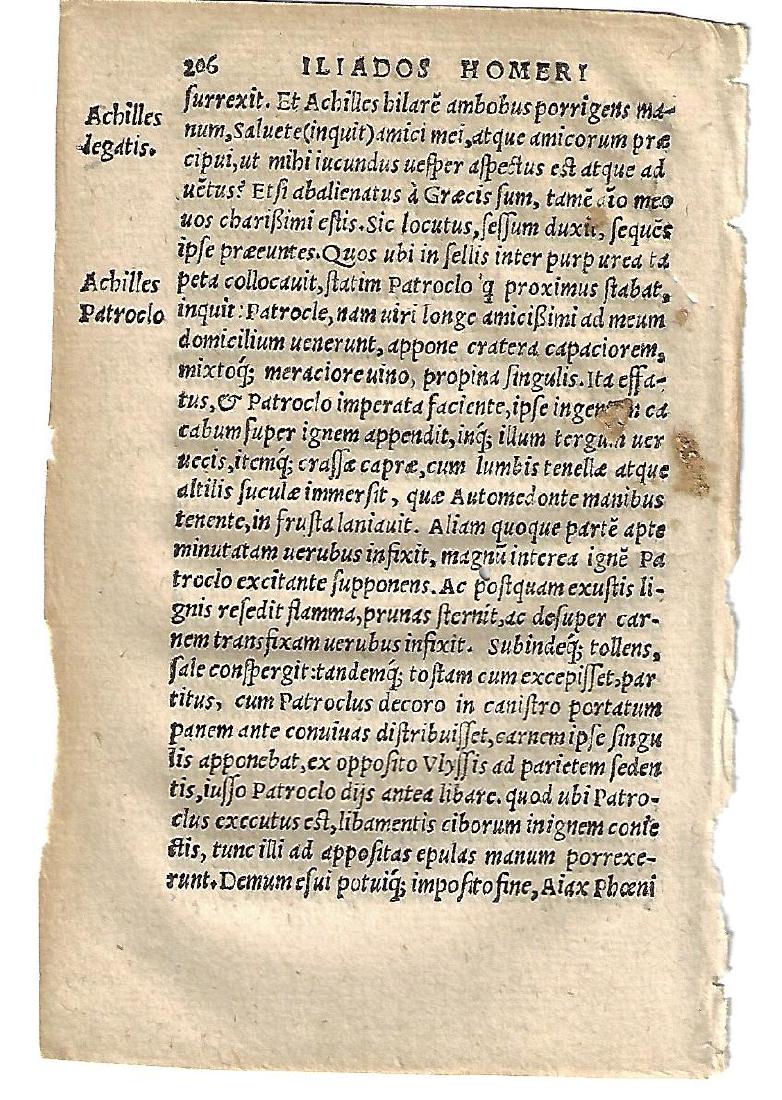 206 ILIADOS HOMERI
Achilles
legatis.
surrexit. Et Achilles hilarē ambobus porrigens ma-
num, Saluete (inquit) amici mei, atque amicorum præ
cipui, ut mihi iucundus uesper aspectus est atque ad
uētus? Etsi abalienatus à Græcis sum, tamē aīo meo
uos charißimi estis. Sic locutus, sessum duxit, sequēs
ipse præeuntes. Quos ubi in sellis inter purpurea ta
Achilles
Patroclo
peta collocauit, statim Patroclo 'q proximus stabat,
inquit: Patrocle, nam uiri longe amicißimi ad meum
domicilium uenerunt, appone cratera capaciorem,
mixtoq́; meraciore uino, propina singulis. Ita effa-
tus, & Patroclo imperata faciente, ipse ca
cabum super ignem appendit, inq́; illum tergum uer
uecis, itemq́; crassæ capræ, cum lumbis tenellæ atque
altilis suculæ immersit, quæ Automedonte manibus
tenente, in frusta laniauit. Aliam quoque partē apte
minutatam uerubus infixit, magnū interea ignē Pa
troclo excitante supponens. Ac postquam exustis li-
gnis resedit flamma, prunas sternit, ac desuper car-
nem transfixam uerubus infixit. Subindeq́; tollens,
sale conspergit: tandemq́; tostam cum excepisset, par
titus, cum Patroclus decoro in canistro portatum
panem ante conuiuas distribuisset, carnem ipse singu
lis apponebat, ex opposito Vlyssis ad parietem seden
tis, iusso Patroclo dijs antea libare. quod ubi Patro-
clus executus est, libamentis ciborum in ignem conie
ctis, tunc illi ad appositas epulas manum porrexe-
runt. Demum esui potuiq́; imposito fine, Aiax Phœni